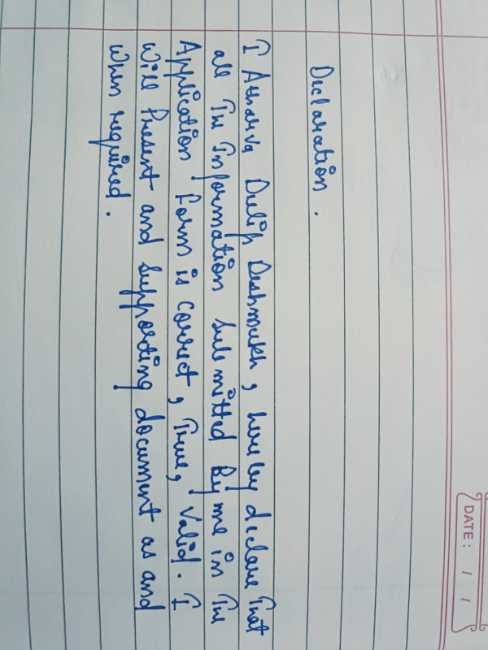 DATE: / /
Declaration.
I Atharva Dulip Deshmukh, hereby declare That
all The Information Submitted By me in The
Application Form is correct, True, Valid. I
Will Present and Supporting document as and
when required.